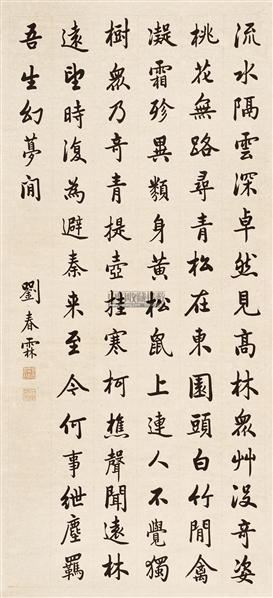 流水隔雲深卓然見高林眾艸沒奇姿
桃花無路尋青松在東園頭白竹間禽
凝霜殄異類身黃松鼠上連人不覺獨
樹眾乃奇青提壺挂寒柯樵聲聞遠林
遠望時復為避秦来至今何事紲塵羈
吾生幻夢間
劉春霖